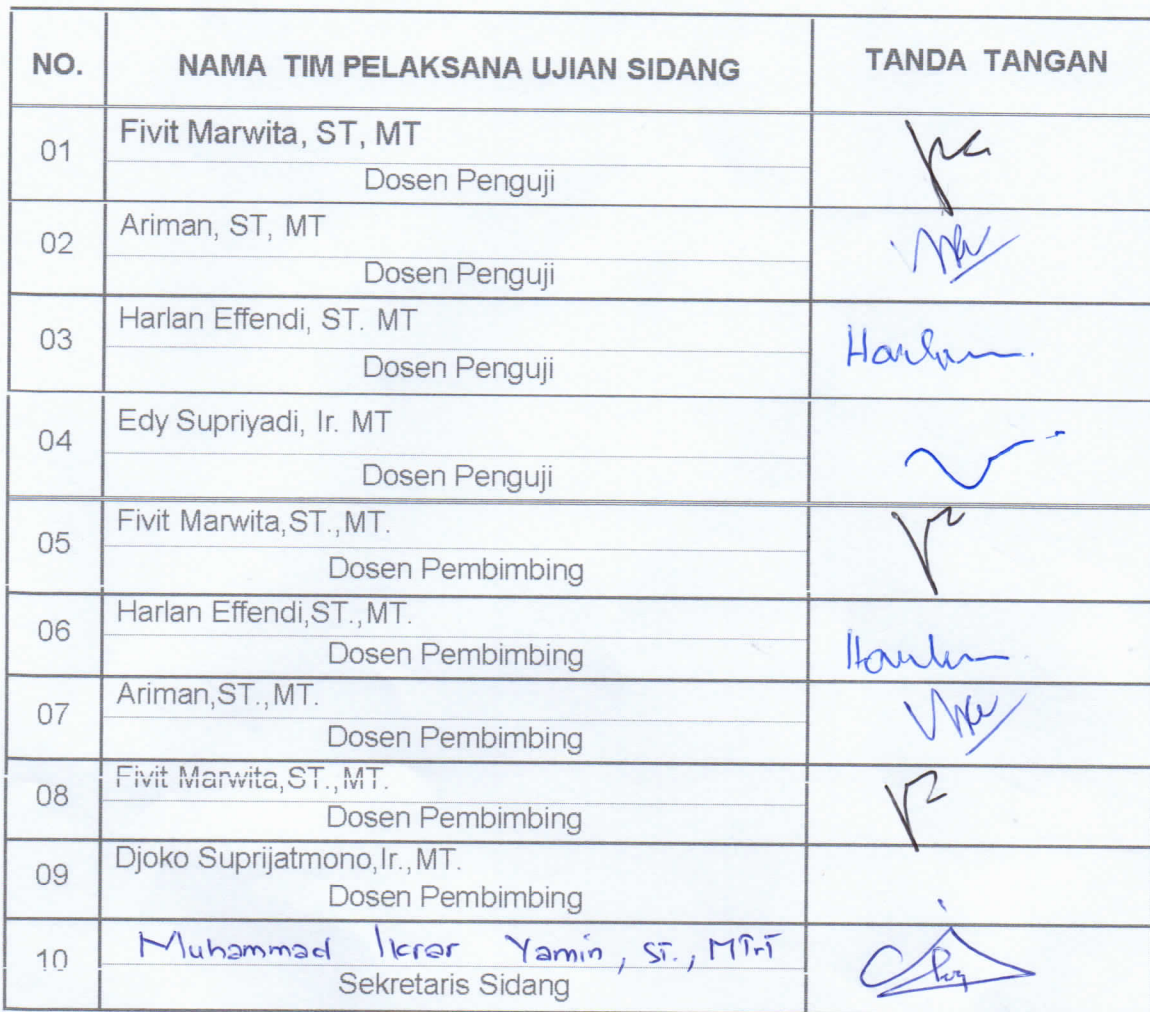 NO. NAMA TIM PELAKSANA UJIAN SIDANG TANDA TANGAN
01 Fivit Marwita, ST, MT
Dosen Penguji
02 Ariman, ST, MT
Dosen Penguji
03 Harlan Effendi, ST. MT
Dosen Penguji
Harlan
04 Edy Supriyadi, Ir. MT
Dosen Penguji
05 Fivit Marwita,ST.,MT.
Dosen Pembimbing
06 Harlan Effendi,ST.,MT.
Dosen Pembimbing
Harlan
07 Ariman,ST.,MT.
Dosen Pembimbing
08 Fivit Marwita,ST.,MT.
Dosen Pembimbing
09 Djoko Suprijatmono,Ir.,MT.
Dosen Pembimbing
10 Muhammad Ikrar Yamin, ST., MTrT
Sekretaris Sidang